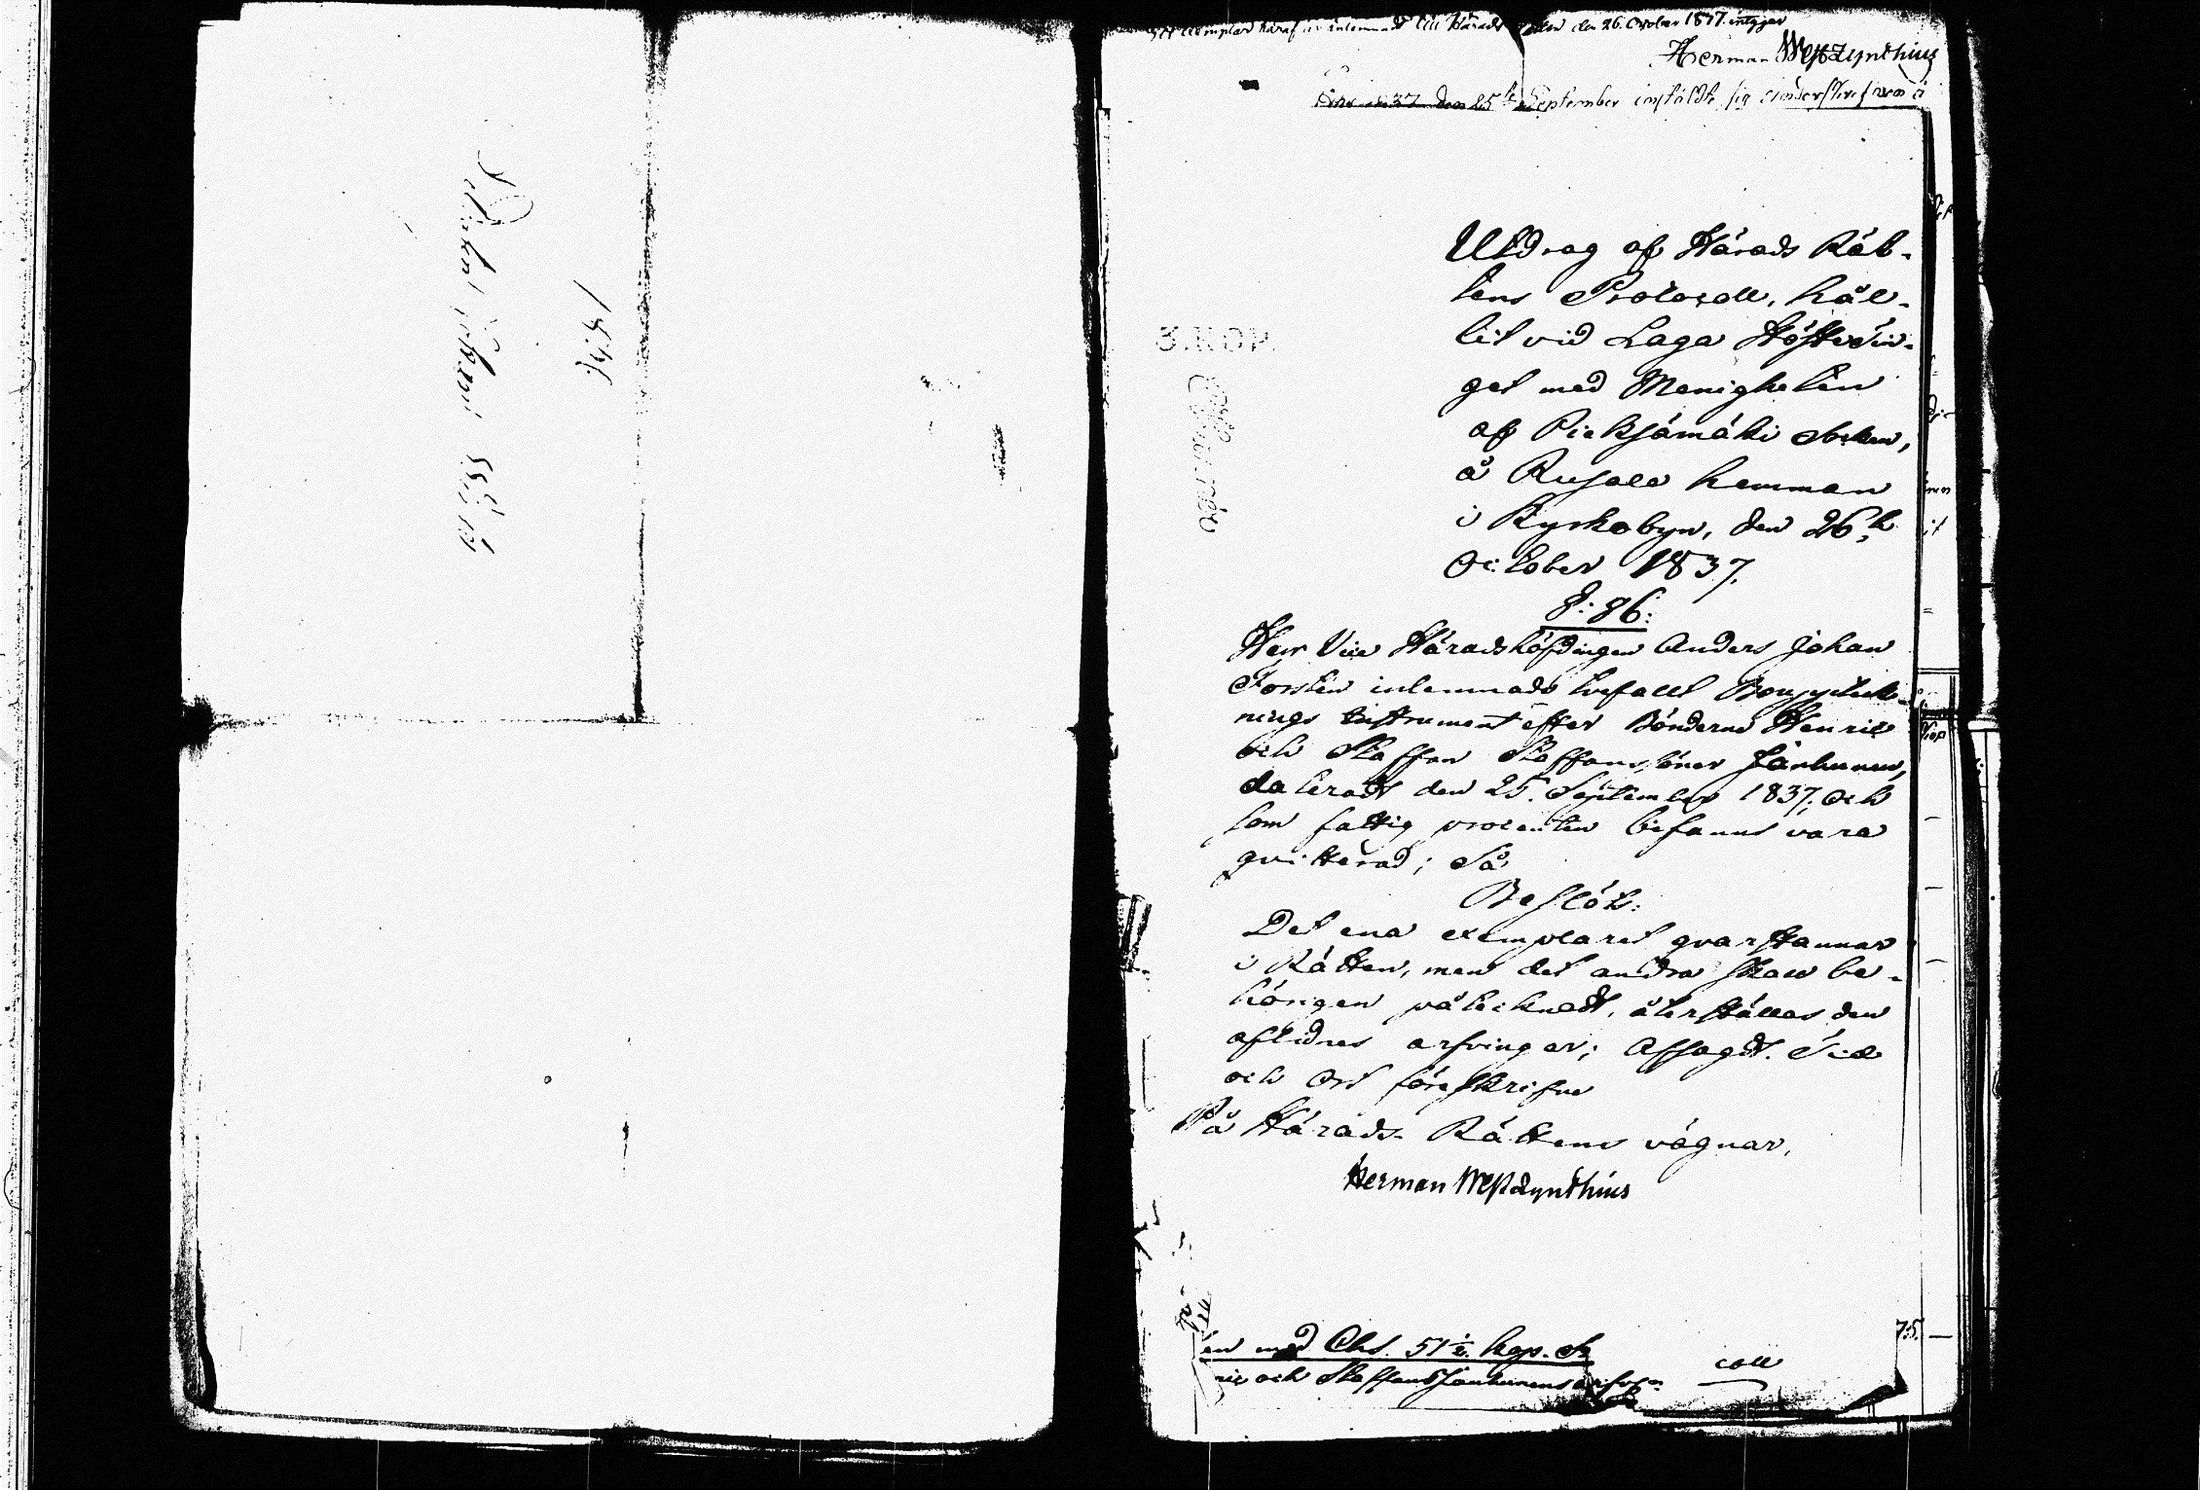 exemplar häraf är inlemnadt till Härads den 26. October 1837. intygar
Herman Westzynthius
1837 den 25te September instälde sig
Utdrag af Härads Rät-
tens Protocoll, hål-
lit vid Laga Höstetin-
get med Menigheten
af Pieksjämäki Socken,
å Rusala hemman
i Kyrkobyn, den 26te
October 1837.
§: 86:
Herr Vice Häradshöfdingen Anders Johan
Forstén inlemnade tvefallt Boupptekk-
nings Instrument efter Bönderne Henric
och Staffan Staffanssöner Janhunen,
dateradt den 25. September 1837, och
som fattig procenten befanns vara
qvitterad; Så
Beslöts:
Det ena exemplaret qvarstannar
i Rätten, men det andra skall be-
hörigen påtecknadt, återställas den
aflidnes arfvingar; Afsagdt. Tid
och Ort föreskrifne
På Härads Rättens vägnar,
Herman Westzynthius
en med Cht. 51 ½ kop. S
ric och Staffans Janhunens
coll
3. KOP.